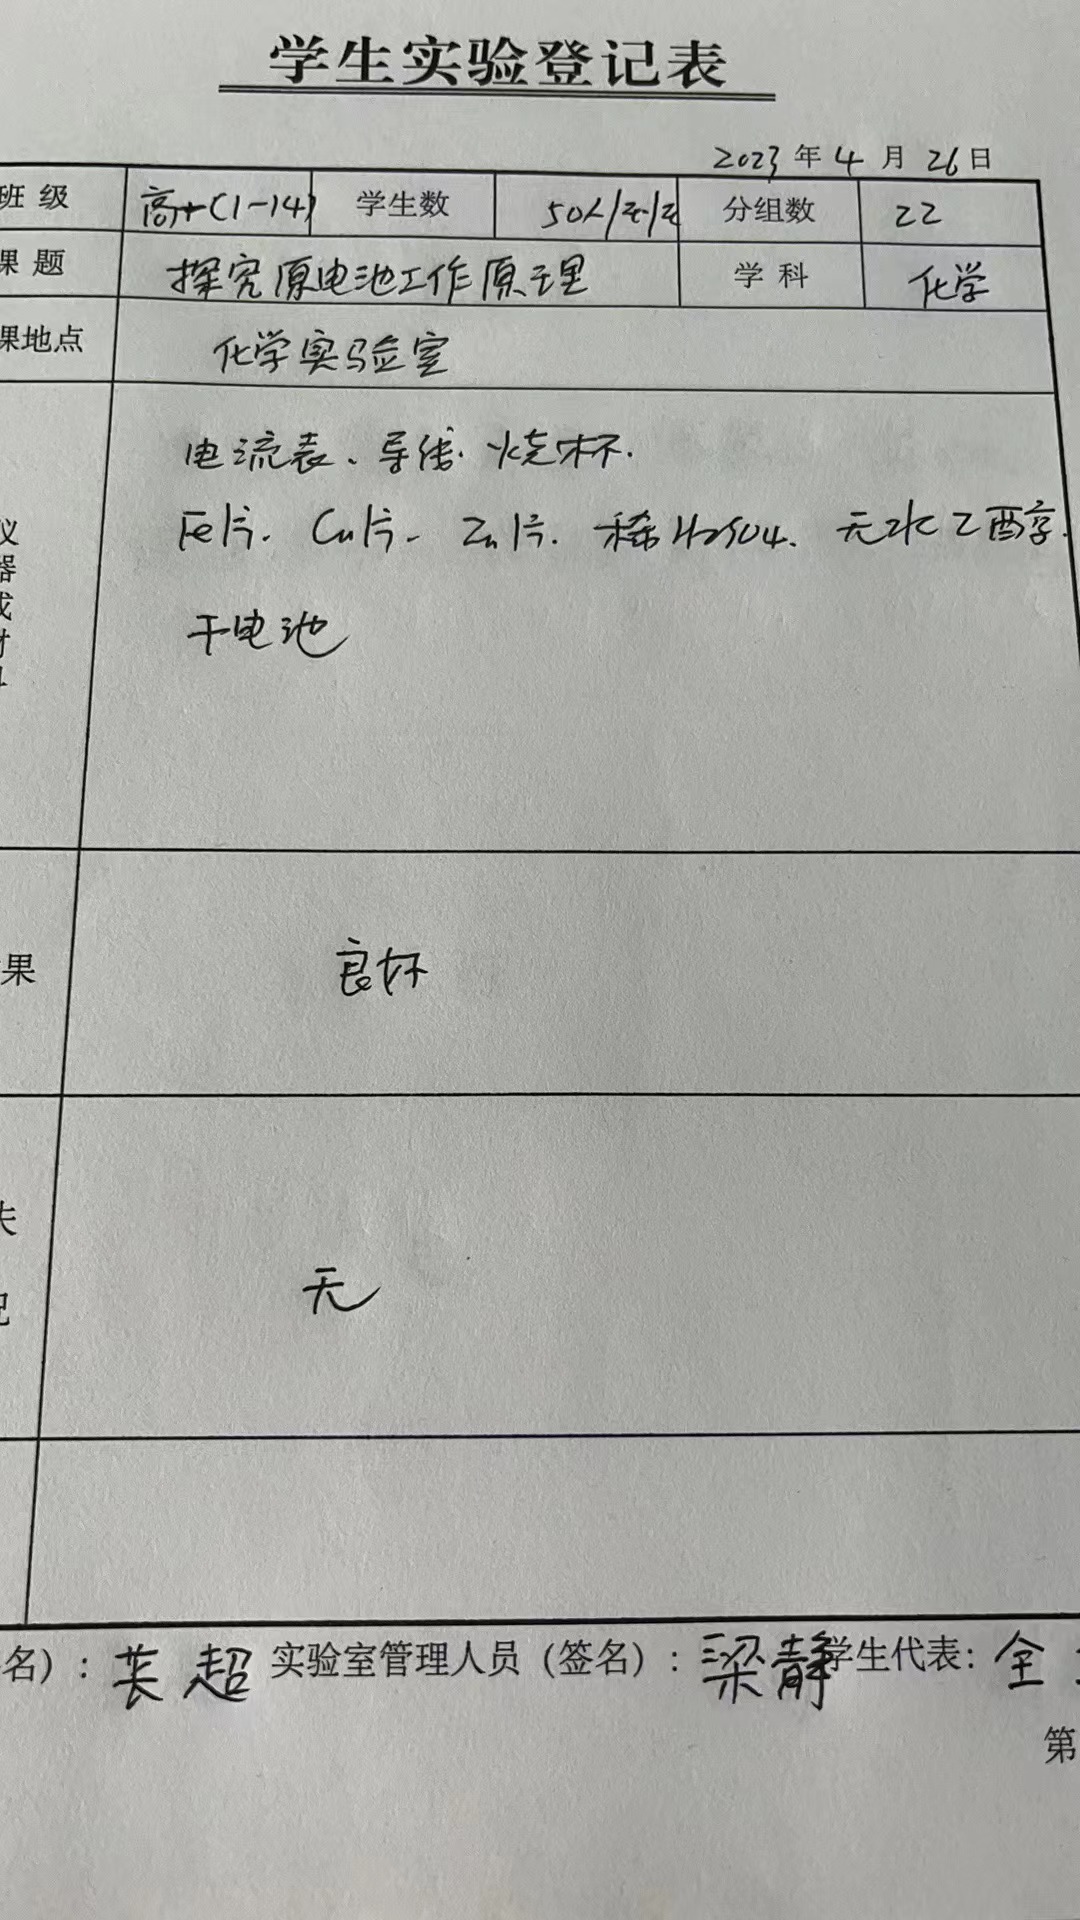 学生实验登记表
2023年4月26日
班级 高一(1-14) 学生数 50人/班 分组数 22
课题 探究原电池工作原理 学科 化学
课地点 化学实验室
电流表、导线、烧杯.
仪器或材 Fe片、Cu片、Zn片、稀H2SO4、无水乙醇.
干电池
果 良好
失
况 无
名）： 超 实验室管理人员（签名）：梁静 学生代表：全
第